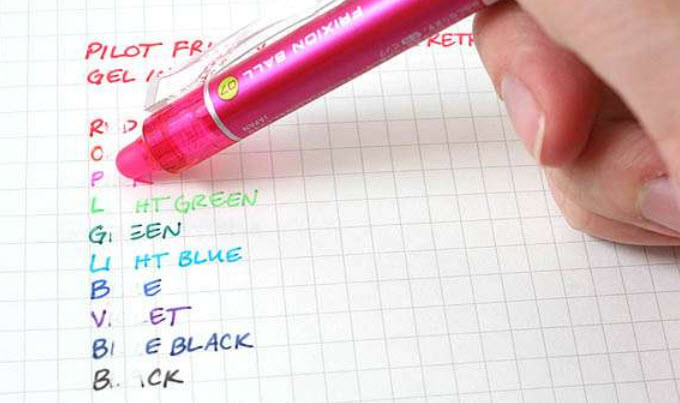 PILOT FRI RETR
GEL IN
R D
O
P
L HT GREEN
G EEN
LI HT BLUE
B E
V ET
Bl E BLACK
B CK
FRIXION BALL
07
JAPAN